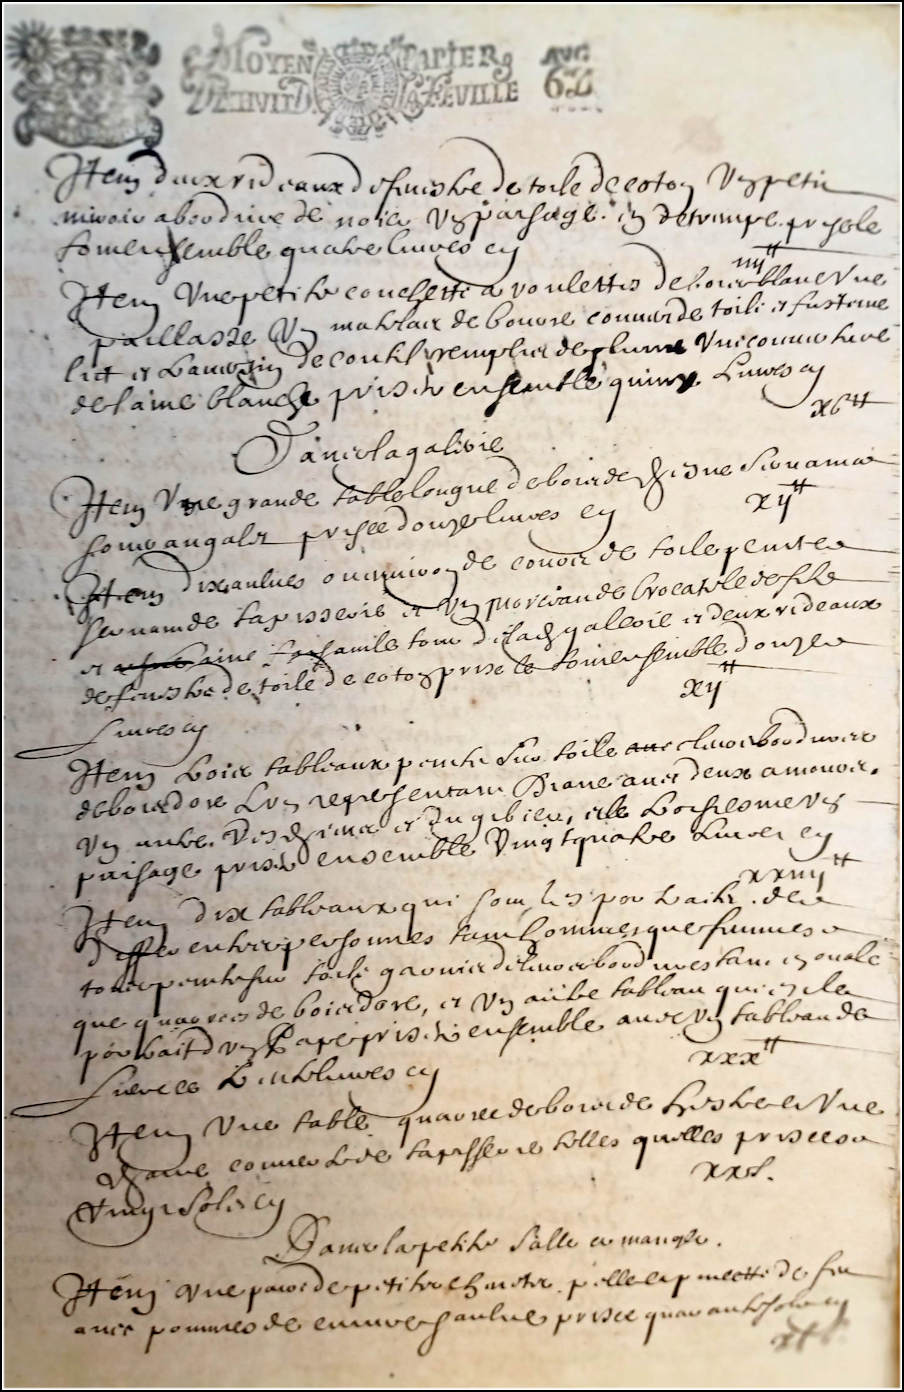 MOYEN PAPIER AUG
DE HUIT D. LA FEVILLE 62
Item deux rideaux de fenestre de toile de coton Un petit
miroir a bordure de noier Un paisage en detrempe prisé le
tout ensemble quatre livres cy
iiij tt
Item Une petite couchette a roulettes de bois blanc Une
paillasse Un matelas de bourre couvert de toile et fustene
lict et traversin de coutil remplis de plume Une couverture
de laine blanche prisé ensemble quinze Livres cy
xv tt
Dans la galerie
Item Une grande table longue de bois de chesne
prisée douze livres cy
xij tt
Item dix aulnes ou environ de de toile peinte
servant de tapisserie et Un morceau de brocatelle de fil
et laine tour de lad. gallerie et deux rideaux
de fenestre de toile de coton prisé le tout ensemble douze
xij tt
Livres cy
Item trois tableaux peints sur toile avec leurs bordures
de bois doré L'un representant Diane avec deux amours,
Un autre et du gibier, et le troisiesme Un
paisage prisé ensemble Vingt quatre Livres cy
xxiiij tt
Item dix tableaux qui sont les portraits de
differentes personnes tant hommes que femmes
tous peints sur toile garnis de leurs bordures tant en ovale
que quarrées de bois doré, et Un autre tableau qui est le
portrait d'un Pape prisé ensemble avec Un tableau de
xxx tt
Lucrece trente livres cy
Item Une table quarrée de bois de hestre et Une
chaire couverte de tapisserie telles quelles prisées
xx s.
Vingt Sols cy
Dans la petite Salle a manger.
Item Une paire de petits chenets pelle et pincette de feu
avec pommes de cuivre jaulne prisée quarante sols cy
xl s